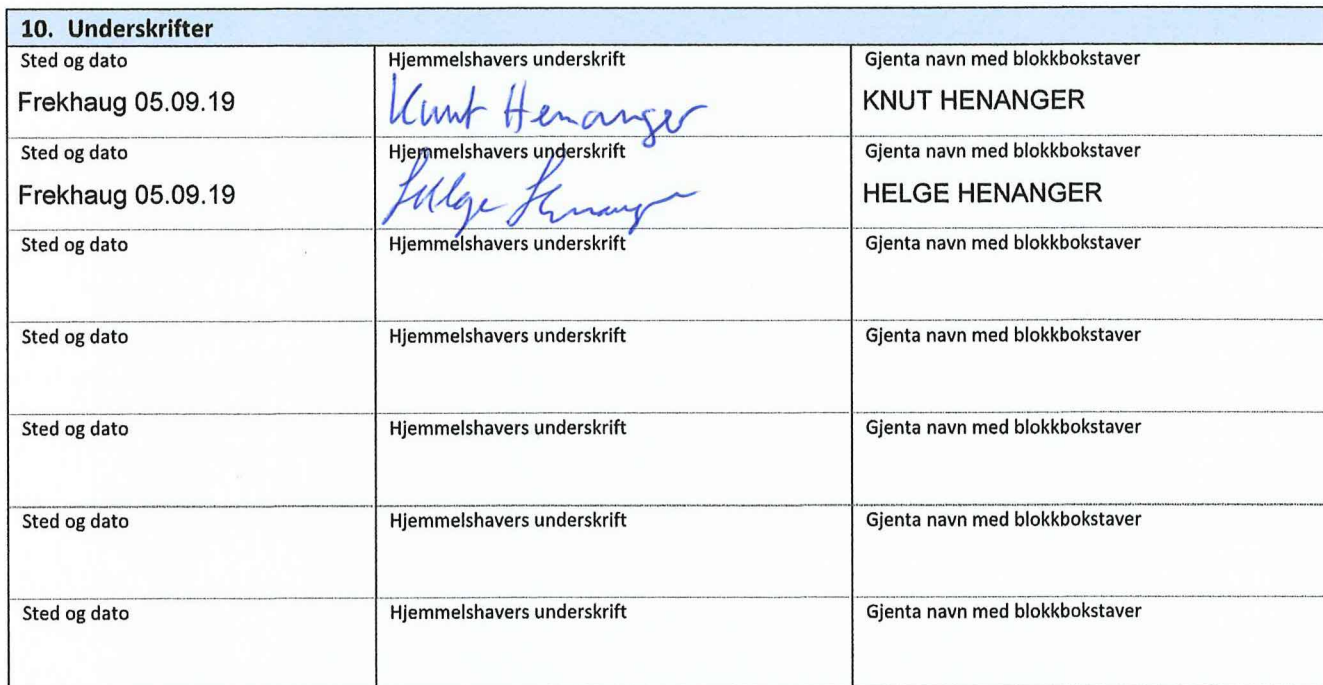 10. Underskrifter
Sted og dato Hjemmelshavers underskrift Gjenta navn med blokkbokstaver
Frekhaug 05.09.19 Knut Henanger KNUT HENANGER
Sted og dato Hjemmelshavers underskrift Gjenta navn med blokkbokstaver
Frekhaug 05.09.19 Helge Henanger HELGE HENANGER
Sted og dato Hjemmelshavers underskrift Gjenta navn med blokkbokstaver
Sted og dato Hjemmelshavers underskrift Gjenta navn med blokkbokstaver
Sted og dato Hjemmelshavers underskrift Gjenta navn med blokkbokstaver
Sted og dato Hjemmelshavers underskrift Gjenta navn med blokkbokstaver
Sted og dato Hjemmelshavers underskrift Gjenta navn med blokkbokstaver